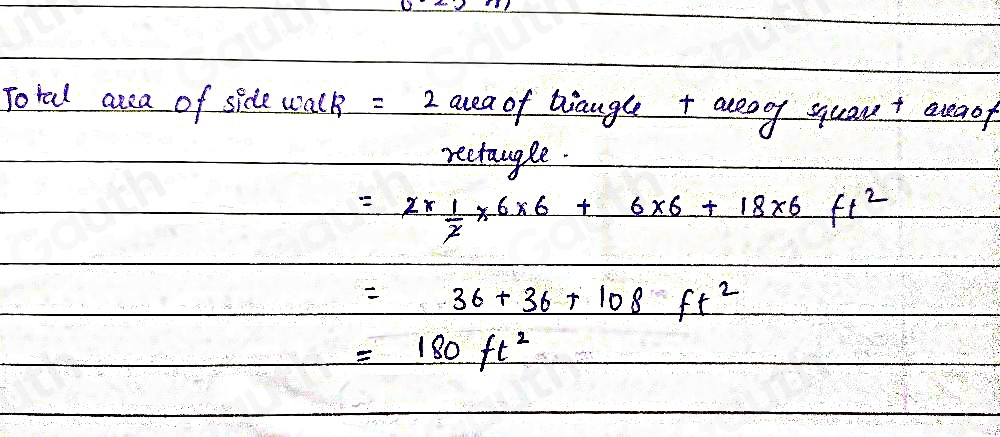 Total area of side walk = 2 area of triangle + area of square + area of
rectangle.
= 2 × 1/2 × 6 × 6 + 6 × 6 + 18 × 6 ft²
= 36 + 36 + 108 ft²
= 180 ft²